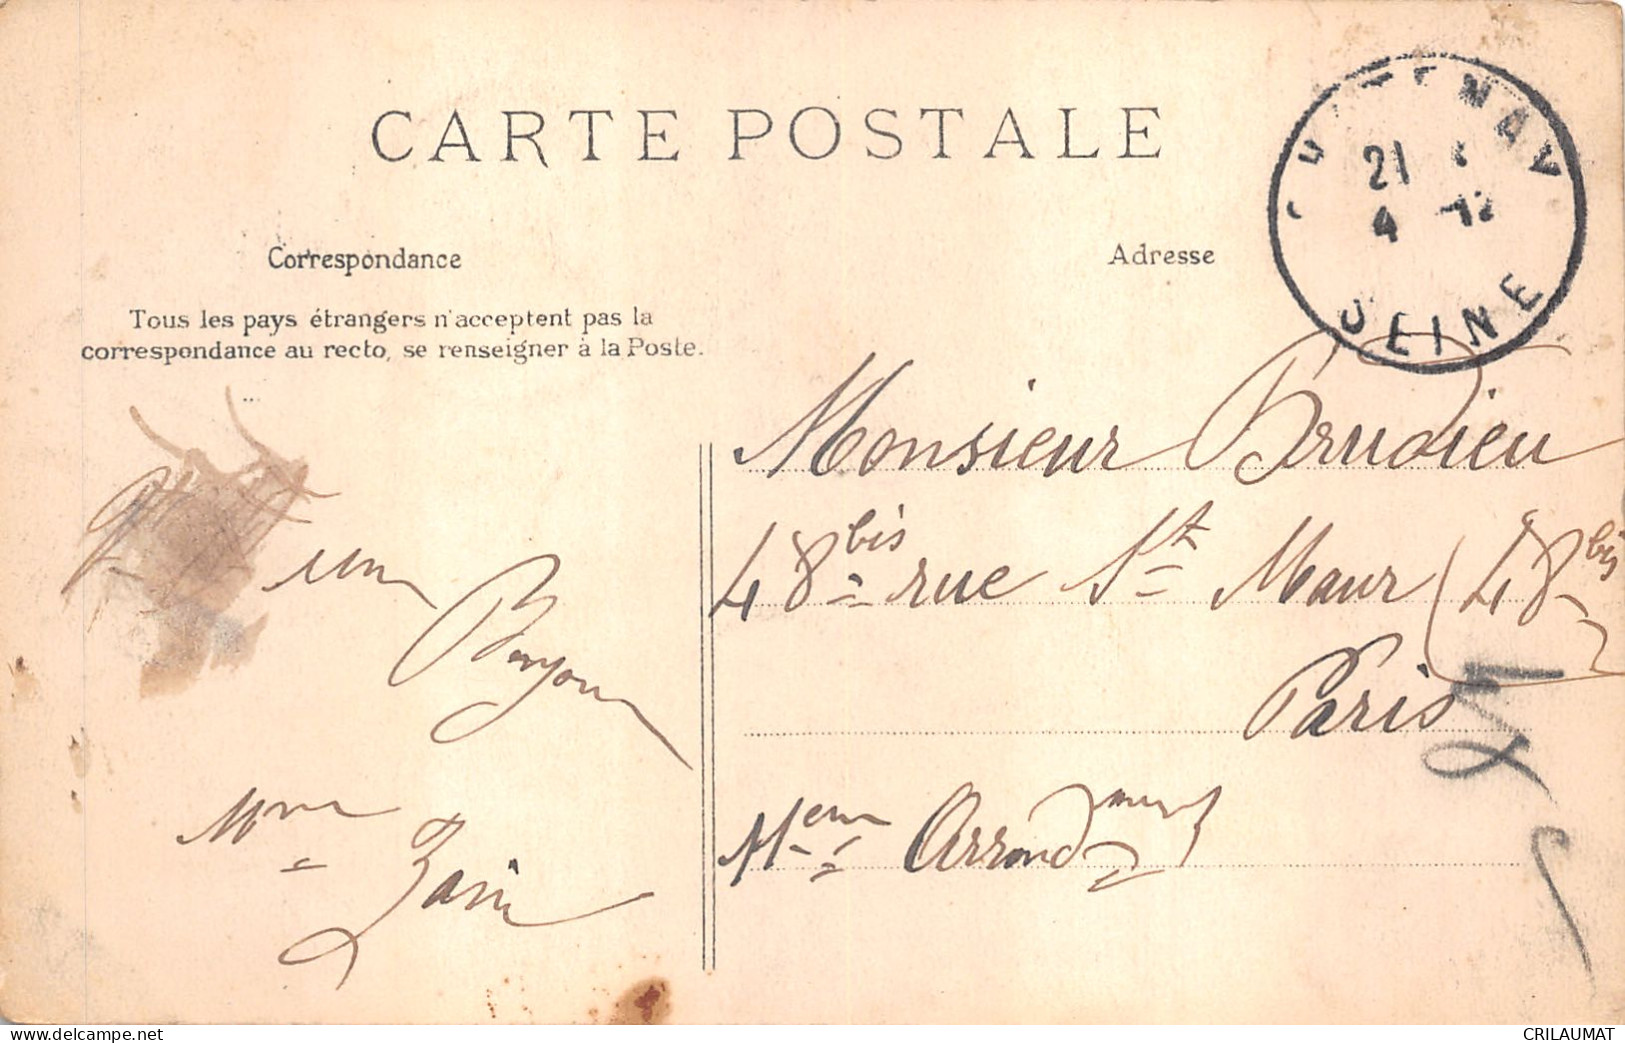 CARTE POSTALE
Correspondance
Tous les pays étrangers n'acceptent pas la
correspondance au recto, se renseigner à la Poste.
Adresse
21
4 -12
SEINE
Monsieur Brudieu
48 bis rue St Maur (48 bis
Paris
11eme Arrond
un
Bonjour
Mme
CRILAUMAT